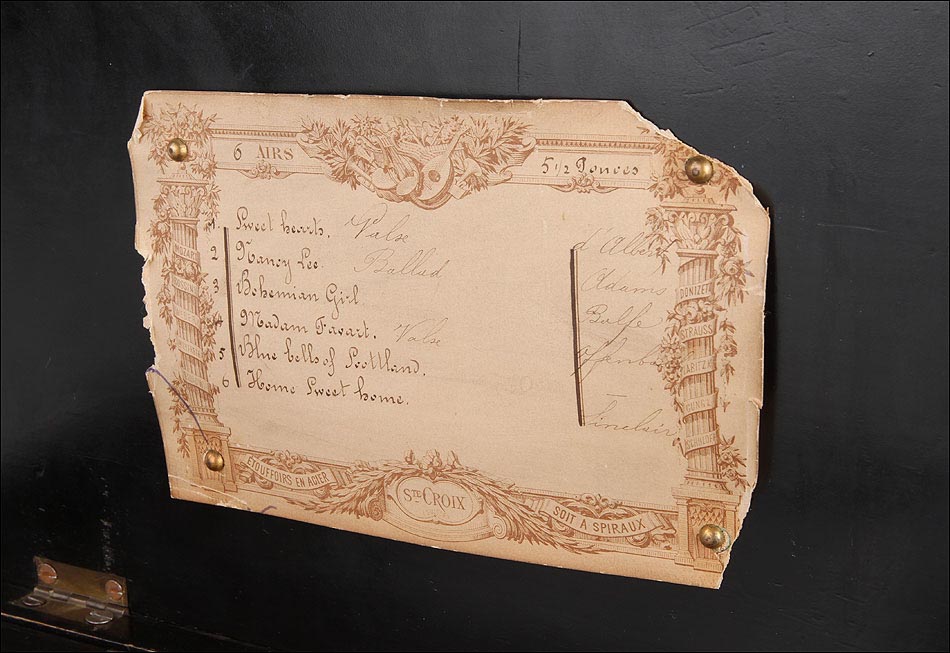 6 AIRS 5 1/2 Pouces
1 Sweet hearts. Valse d'Albert
2 Nancy Lee. Ballad Adams
3 Bohemian Girl. Balfe
4 Madam Favart. Valse Offenbach
5 Blue bells of Scottland.
6 Home Sweet home. Sinclair
MOZART
DONIZETTI
STRAUSS
ÉTOUFFOIRS EN ACIER
STE CROIX
SOIT A SPIRAUX